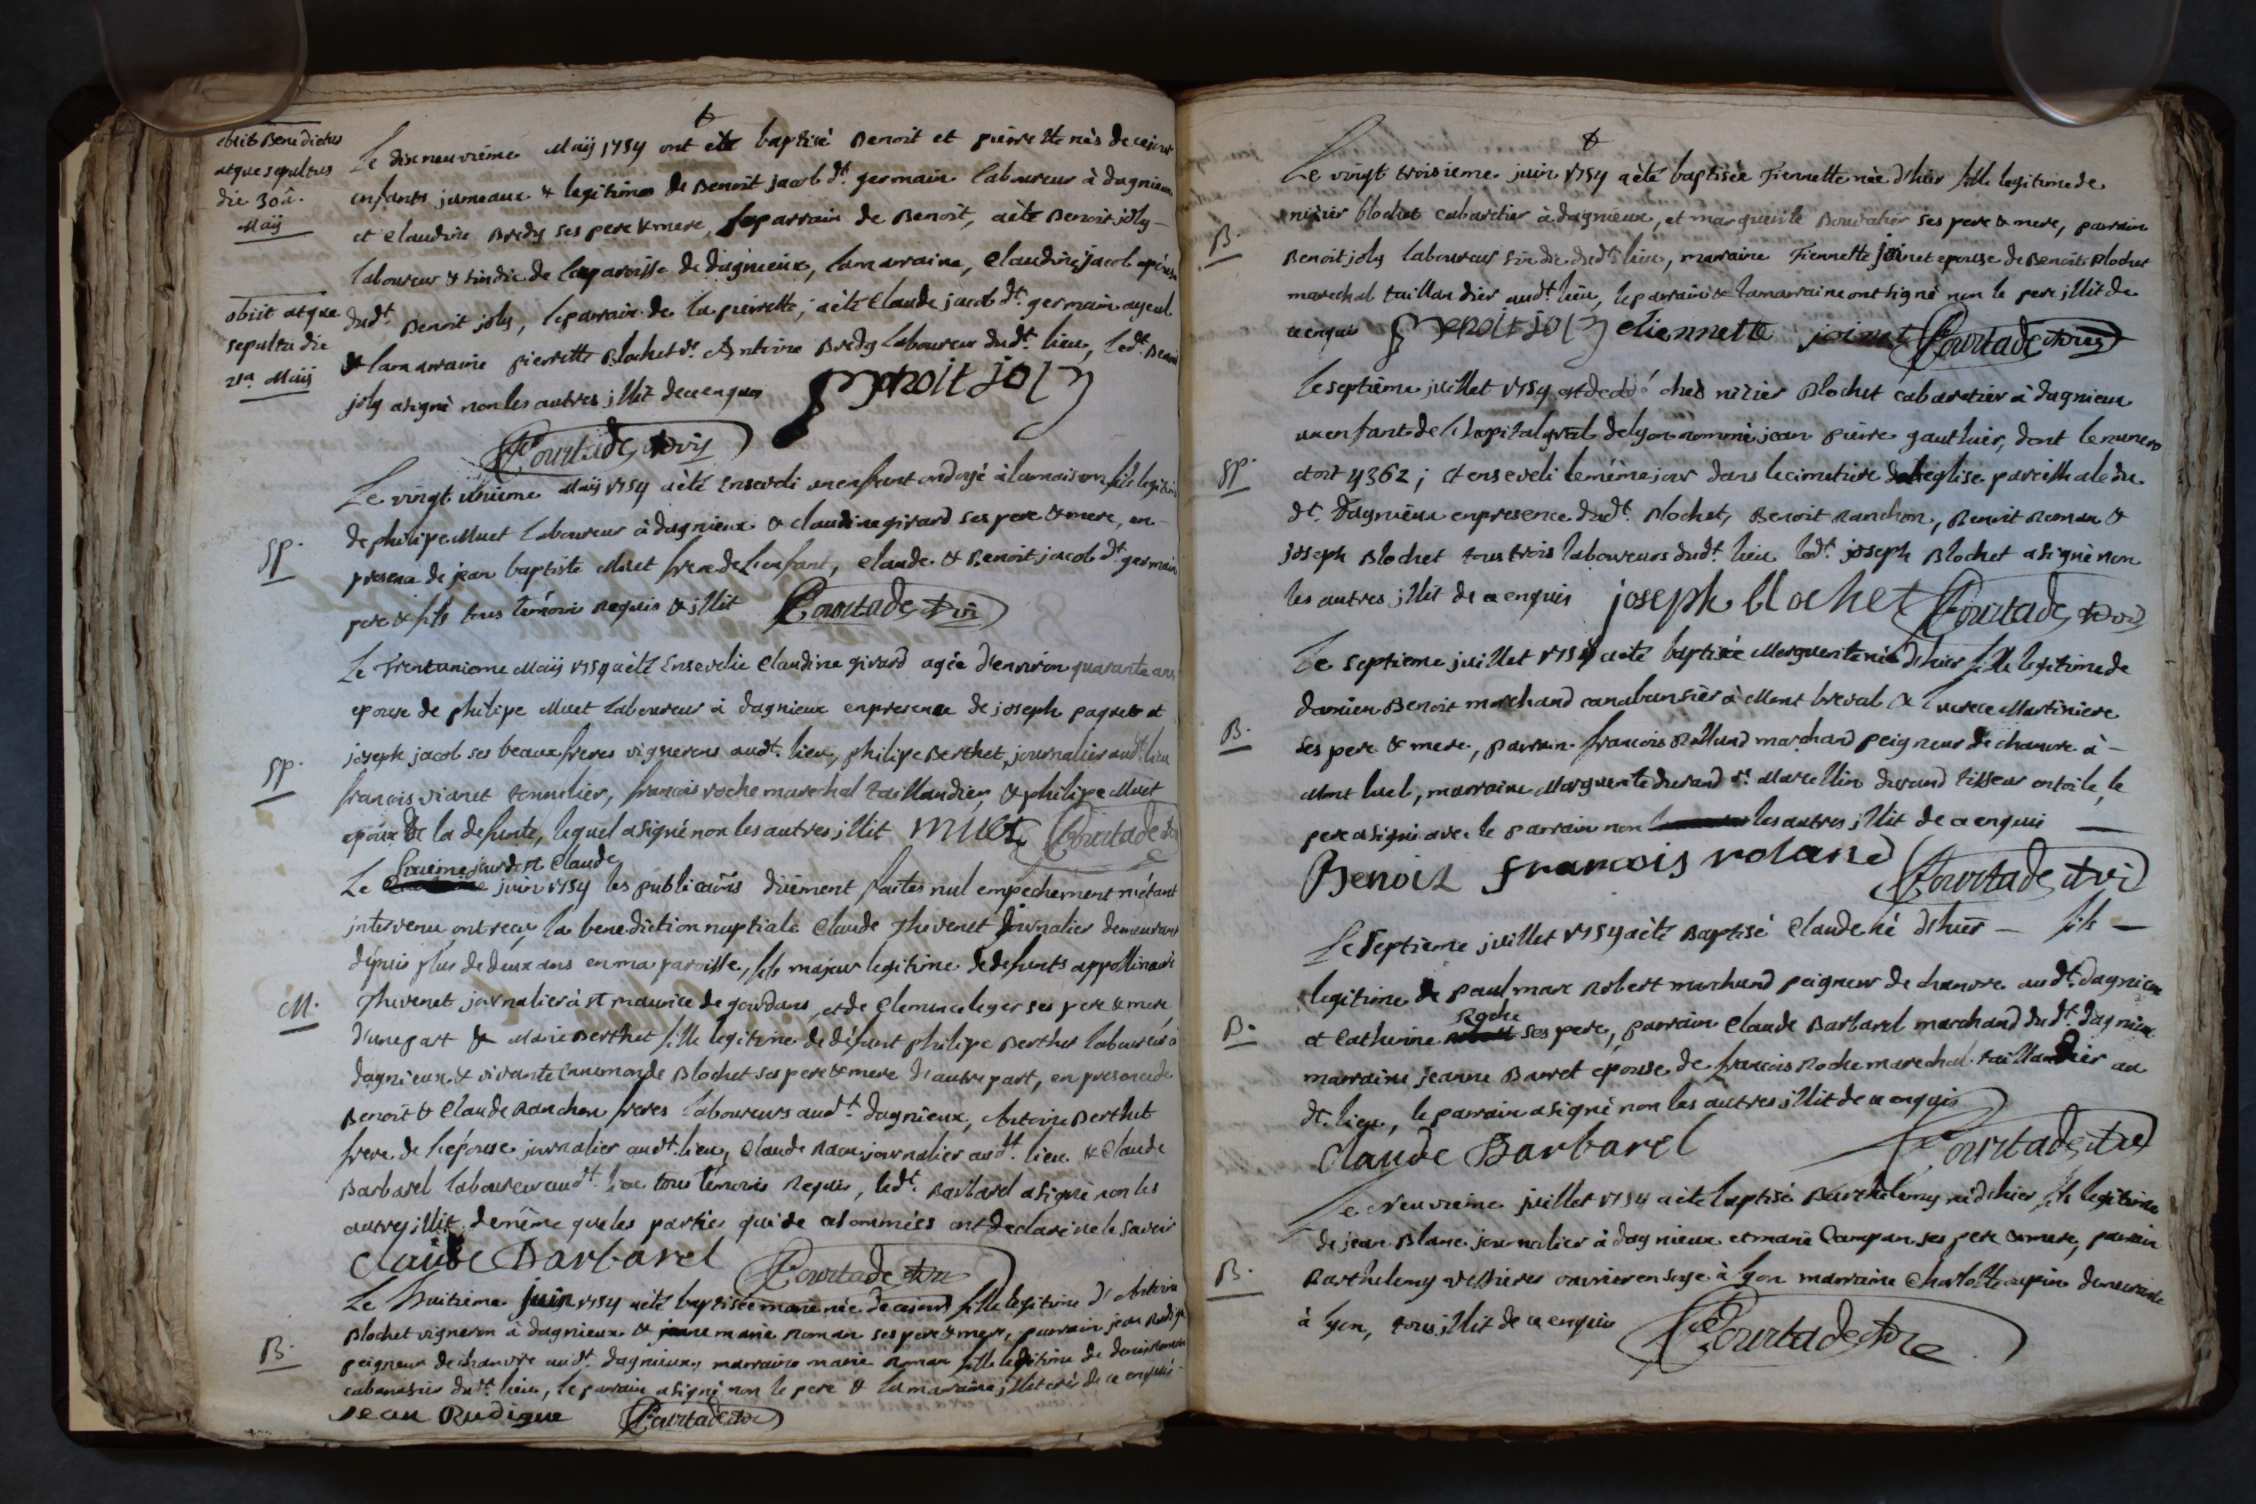 obiit Benedictus
atque sepultus
die 30â.
Maÿ
Le dix neuvième Maÿ 1754 ont été baptisé Benoit et pierrette nés de ce jour
enfants jumeaux & legitimes de Benoit jacob dt. germain laboureur à dagnieux
et Claudine Bredy ses pere & mere, le parrain de Benoit, a été Benoit joly
laboureur & sindic de la paroisse de dagnieux, la marraine, Claudine jacob épouse
obiit atque
sepulta die
21a Maÿ
dudt. Benoit joly, le parrain de la pierrette, a été Claude jacob dt. germain ayeul
& la marraine pierrette Blochet Antoine Bredy laboureur dudt. lieu, ledt. Benoit
joly a signé non les autres illit. de ce enquis Benoit joly
Courtade
Le vingt Maÿ 1754 a été Enseveli un enfant ondoyé à la maison fils legitime
SP.
de philipe Muet laboureur à dagnieux & claudine girard ses pere & mere, en
presence de jean baptiste Muet frere de l'enfant, Claude & Benoit jacob dt. germain
pere & fils tous temoins requis & illit Courtade
Le Trentunieme Maÿ 1754 a été Ensevelie Claudine girard agée d'environ quarante ans
epouse de philipe Muet laboureur à dagnieux en presence de joseph paquet et
SP.
joseph jacob ses beaux freres vignerons audt. lieu, philipe Berthet, journalier audt. lieu
francois vianet tonnelier, francois roche marechal taillandier, & philipe Muet
epoux de la defunte, lequel a signé non les autres illit. Muet Courtade
jour de st Claude
Le juin 1754 les publicaõns düement faites nul empechement n'étant
intervenu, ont reçu la benediction nuptiale Claude Thevenet journalier demeurant
dépuis plus de deux ans en ma paroisse, fils majeur legitime de defunts appollinaire
M.
Thevenet journalier à st maurice de gourdans, et de Clemence leger ses pere & mere
d'une part & Marie Berthet fille legitime de défunt philipe Berthet laboureur à
dagnieux & vivante Ennemonde Blochet ses pere & mere d'autre part, en presence de
Benoit & Claude Ranchon freres laboureurs audt. dagnieux, Antoine Berthet
frere de l'épouse journalier audt. lieu, Claude journalier audt. lieu & Claude
Barbarel laboureur audt. lieu tous témoins requis, ledt. Barbarel a signé non les
autres illit. de même que les parties qui de ce sommées ont declaré ne le savoir
Claude Barbarel Courtade
Le huitième juin 1754 a été baptisée marie née de ce jour fille legitime d'Antoine
Blochet vigneron à dagnieux & jeanne marie Roman ses pere & mere, parrain jean Rudigue
B.
peigneur de chanvre audt. dagnieux, marraine marie Roman fille legitime de denis Roman
cabaretier dudt. lieu, le parrain a signé non le pere & la marraine illiterés de ce enquis
Jean Rudigue Courtade
Le vingt troisieme juin 1754 a été baptisée Tiennette née d'hier fille legitime de
nizier blochet cabaretier à dagnieux, et marguerite ses pere & mere, parrain
B.
Benoit joly laboureur sindic dudt. lieu, marraine Tiennette joinet epouse de Benoit Blochet
marechal taillandier audt. lieu, le parrain & la marraine ont signé non le pere illit. de
ce enquis Benoit joly etiennette joinet Courtade
Le septième juillet 1754 est decedé chés nizier Blochet cabaretier à dagnieux
un enfant de l'hopital gral. de lyon nommé jean pierre gauthier, dont le numero
SP.
etoit 4362; et enseveli le même jour dans le cimetiere de l'église paroissiale du
dt. Dagnieux en presence dudt. Blochet, Benoit Ranchon, Benoit Roman &
joseph Blochet tous trois laboureurs dudt. lieu ledt. joseph Blochet a signé non
les autres illit. de ce enquis joseph blochet Courtade
Le septieme juillet 1754 a été baptisée Marguerite née d'hier fille legitime de
damien Benoit marchand à Mont & Martiniere
B.
ses pere & mere, parrain francois Rolland marchand peigneur de chanvre à
Mont luel, marraine Marguerite durand Marcellin durand tisseur en toile, le
pere a signé avec le parrain non les autres illit de ce enquis
Benoit francois roland Courtade
Le Septieme juillet 1754 a été Baptisé Claude né d'hier fils
legitime de paul marc Robert marchand peigneur de chanvre audt. dagnieux
Roche
B.
et Catherine ses pere, parrain Claude Barbarel marchand dudt. dagnieux
marraine jeanne Barret épouse de francois Roche marechal taillandier au
dt. lieu, le parrain a signé non les autres illit de ce enquis
Claude Barbarel Courtade
Le Neuvieme juillet 1754 a été baptisé Barthelemy né d'hier fils legitime
de jean Blanc journalier à dagnieux et marie Campan ses pere & mere, parrain
B.
Barthelemy ouvrier en soye à lyon marraine Charlotte demeurante
à lyon, tous illit de ce enquis Courtade